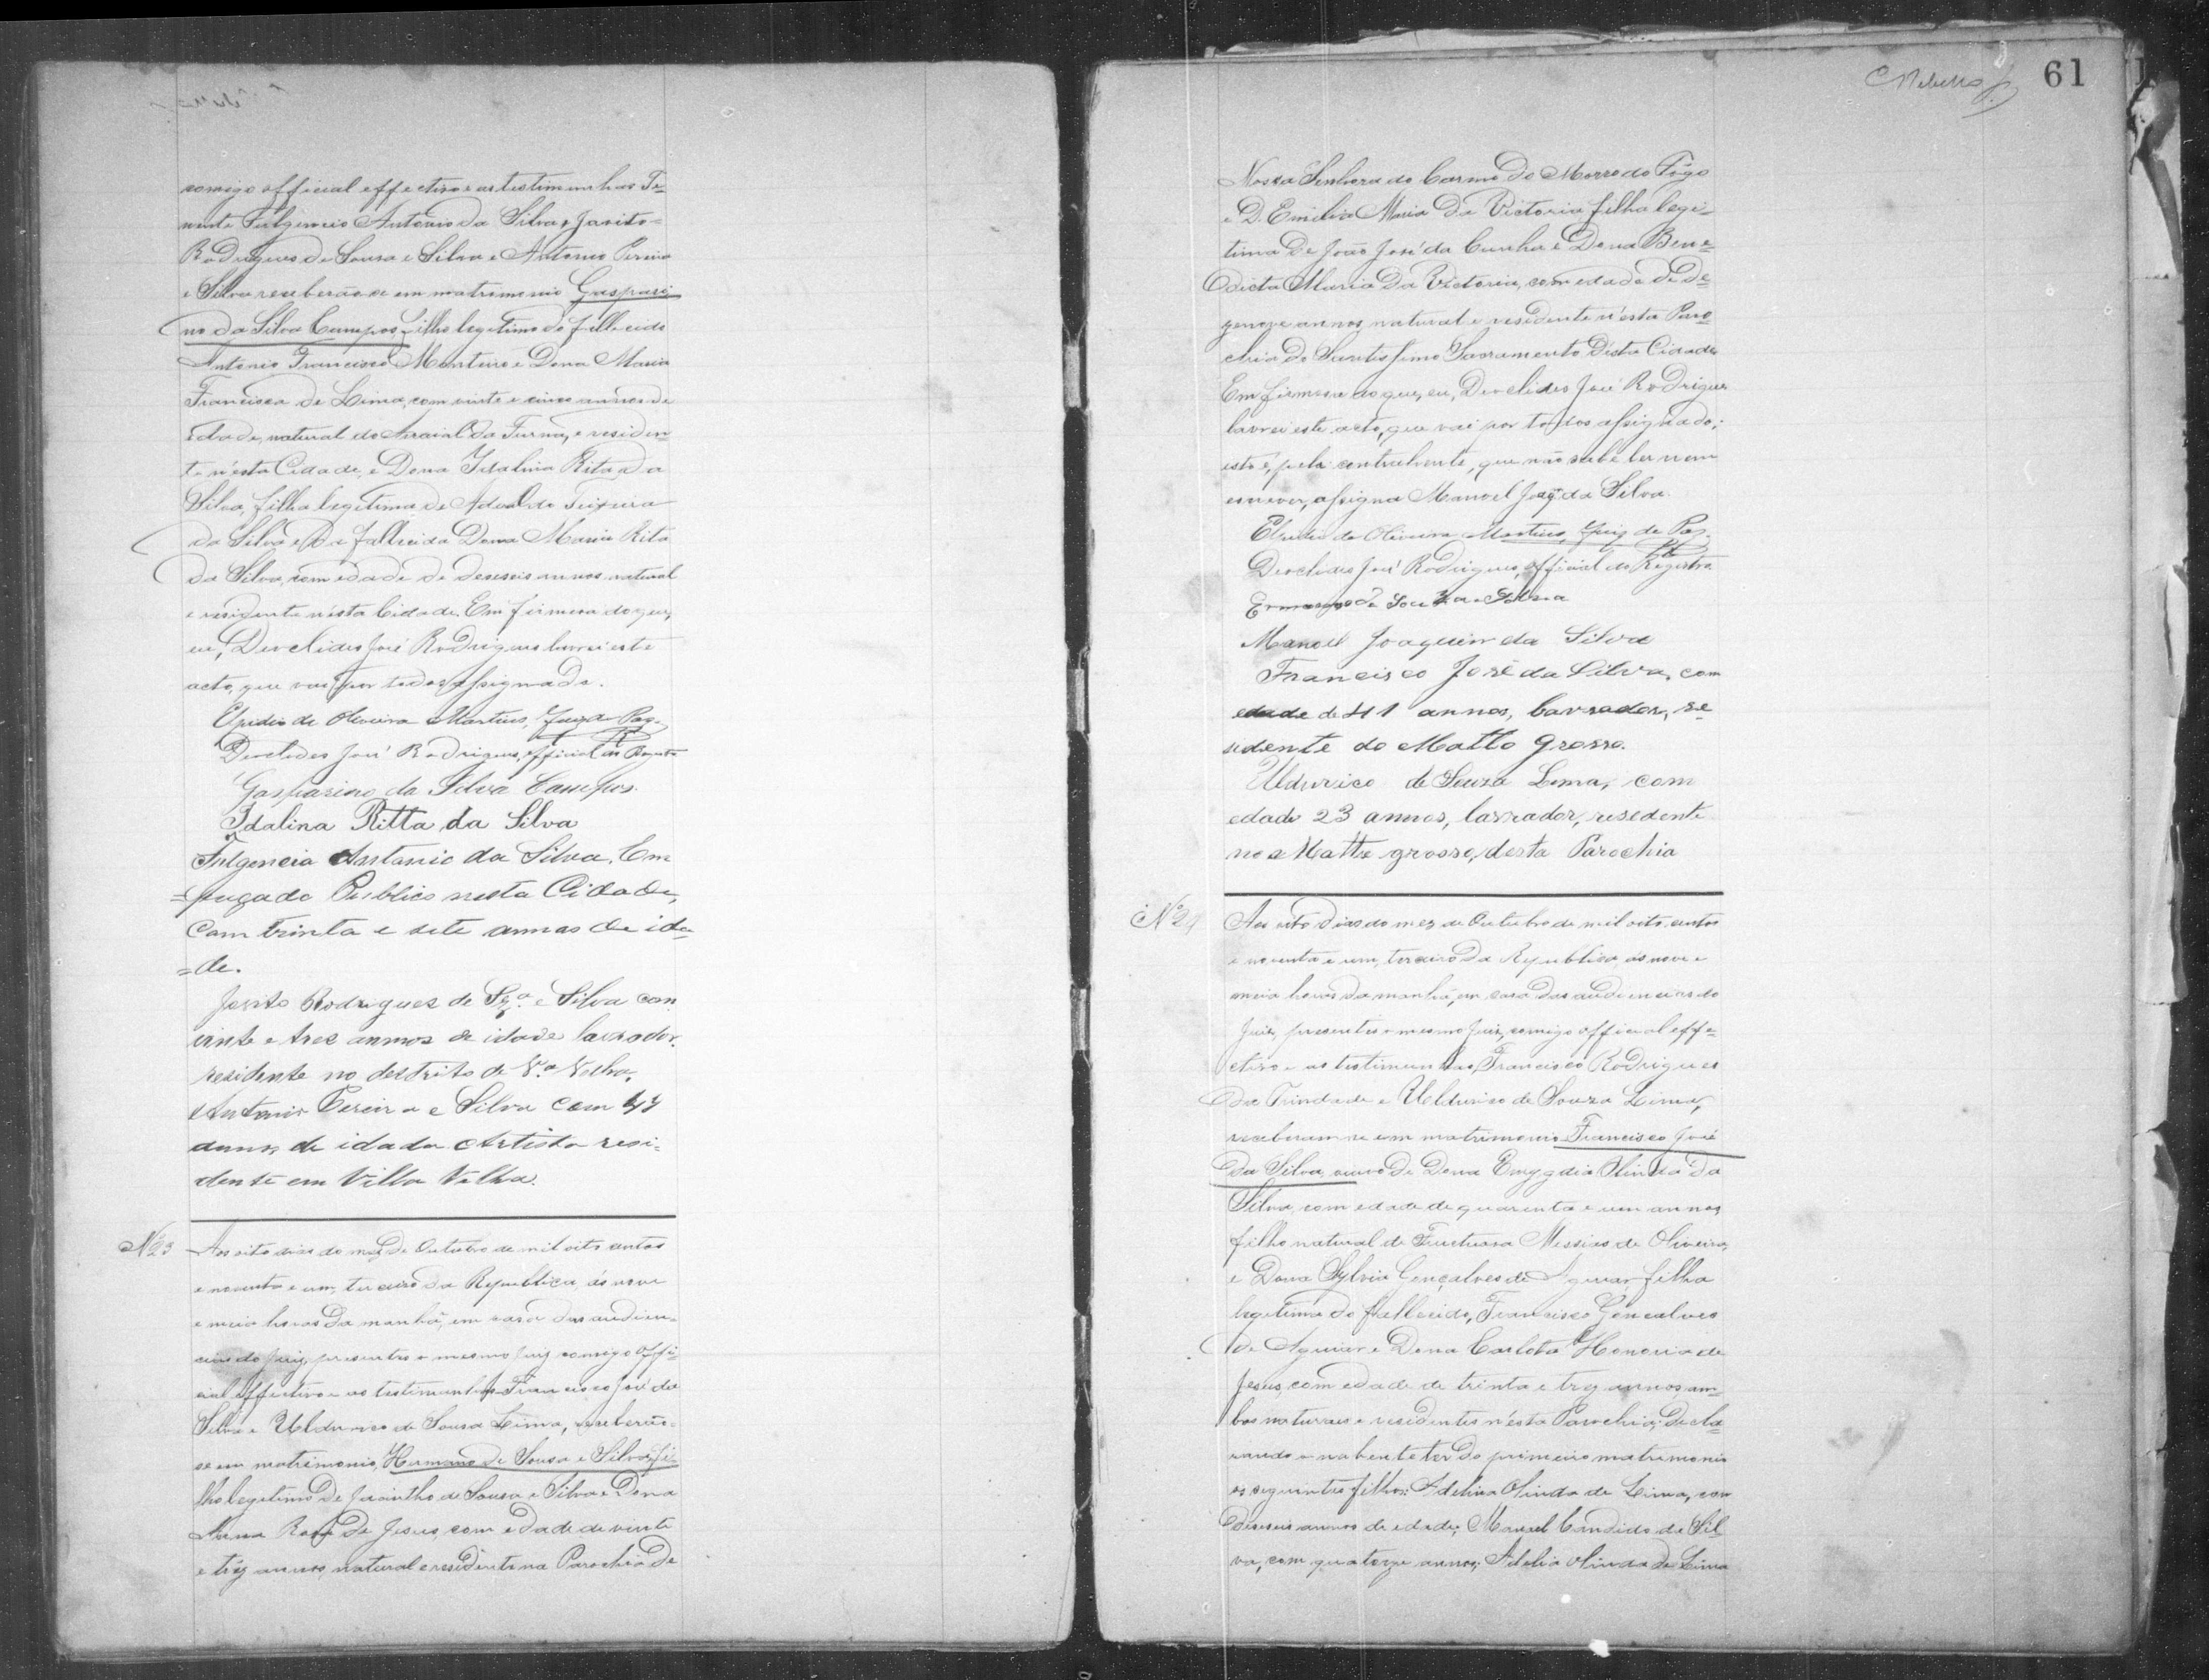 comigo official effectivo e as testimunhas Te-
nente Fulgencio Antonio da Silva, Janito
Rodrigues de Sousa e Silva e Antonio Pereira
e Silva receberão-se em matrimonio Gaspari-
no da Silva Campos, filho legitimo do fallecido
Antonio Francisco Monteiro e Dona Maria
Francisca de Lima, com vinte e cinco annos de
edade, natural do Arraial da Furna, e residen-
te n'esta Cidade, e Dona Idalina Rita da
Silva, filha legitima de Teixeira
da Silva e da fallecida Dona Maria Rita
da Silva, com edade de deseseis annos natural
e residente n'esta Cidade. Em firmesa do que,
eu, Deoclides José Rodrigues lavrei este
acto, que vai por todos assignado.
Elpidio de Oliveira Martins, Juiz de Paz
Deoclides José Rodrigues, official do Registro
Gasparino da Silva Campos.
Idalina Ritta da Silva
Fulgencio Antonio da Silva, Em
=pregado Publico nesta Cidade,
com trinta e sete annos de ida
=de.
Janito Rodrigues de Sza. e Silva com
vinte e tres annos de idade lavrador.
residente no destrito de Va. Velha.
Antonio Pereira e Silva com 47
annos de idade Artista resi-
dente em Villa Velha.
Nº 23
Aos oito dias do mez de Outubro de mil oito centos
e noventa e um, terceiro da Republica, ás nove
e meia horas da manhã, em casa das audien-
cias do Juiz, presentes o mesmo Juiz comigo offi-
cial effectivo e as testimunhas Francisco José da
Silva e Uldurico de Sousa Lima, receberão-
se em matrimonio, Hermano de Sousa e Silva, fi-
lho legitimo de Jacintho de Sousa e Silva e Dona
Anna Rosa de Jesus, com edade de vinte
e trez annos, natural e residente na Parochia de
61
Nossa Senhora do Carmo do Morro do Fôgo
e D. Emilia Maria da Victoria, filha legi-
tima de João José da Cunha e Dona Bene-
dicta Maria da Victoria, com edade de de-
zenove annos, natural e residente n'esta Paro-
chia do Santissimo Sacramento d'esta Cidade.
Em firmesa do que, eu, Deoclides José Rodrigues
lavrei este acto, que vai por todos assignado;
isto é, pela contrahente, que não sabe ler nem
escrever, assigna Manoel Joaqm da Silva.
Elpidio de Oliveira Martins, Juiz de Paz.
Deoclides José Rodrigues, official do Registro.
Ermano de Souza e Silva
Manoel Joaquim da Silva
Francisco José da Silva, com
edade de 41 annos, lavrador, re
sidente do Matto grosso.
Uldurico de Souza Lima, com
edade 23 annos, lavrador, resedente
no Matto grosso, desta Parochia
Nº 24
Aos oito dias do mez de Outubro de mil oito centos
e noventa e um, terceiro da Republica, ás nove e
meia horas da manhã, em casa das audiencias do
Juiz, presentes o mesmo Juiz, comigo official effe-
ctivo e as testimunhas, Francisco Rodrigues
da Trindade e Uldurico de Souza Lima,
receberam-se em matrimonio Francisco José
da Silva, viuvo de Dona Emygdia Olinda da
Silva, com edade de quarenta e um annos,
filho natural de Fructuosa Messias de Oliveira,
e Dona Sylvia Gonçalves de Aguiar, filha
legitima do fallecido, Francisco Goncalves
de Aguiar e Dona Carlota Honoria de
Jesus, com edade de trinta e trez annos, am-
bos naturaes e residentes n'esta Parochia; decla-
rando o nubente ter do primeiro matrimonio
os seguintes filhos: Adelina Olinda de Lima, com
deseseis annos de edade; Manoel Candido da Sil-
va, com quatorze annos; Adelia Olinda de Lima